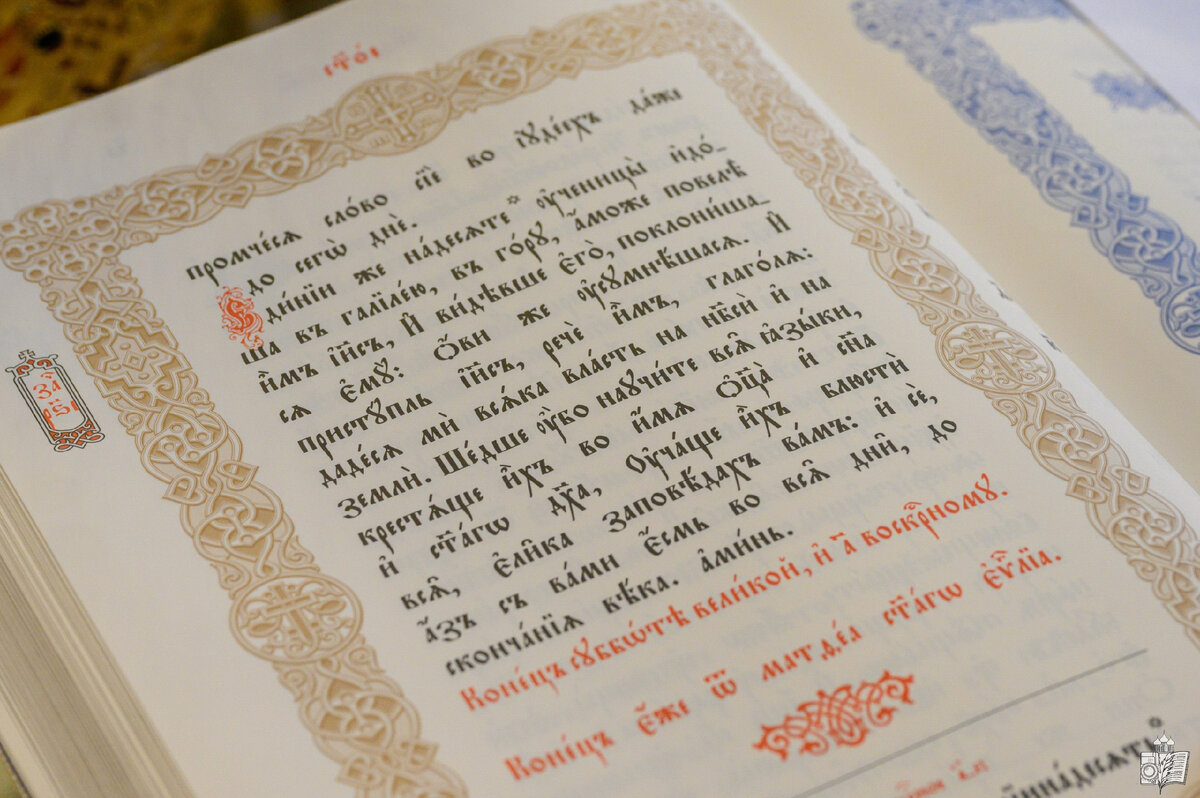 промче́сѧ сло́во сїѐ во і҆ꙋде́ехъ да́же
до сегѡ̀ днѐ.
Є҆ди́нїи же на́десѧте * ᲂу҆ченицы̀ и҆до́-
ша въ галїле́ю, въ го́рꙋ, а҆́може повелѣ̀
и҆̀мъ і҆и҃съ, И҆ ви́дѣвше є҆го̀, поклони́ша-
сѧ є҆мꙋ̀: Ѻ҆́ви же ᲂу҆сꙋмнѣ́шасѧ. И҆
пристꙋ́пль і҆и҃съ, речѐ и҆̀мъ, глаго́лѧ:
даде́сѧ мѝ всѧ́ка вла́сть на нб҃сѝ и҆ на
землѝ. Ше́дше ᲂу҆̀бо наꙋчи́те всѧ̑ ꙗ҆зы́ки,
крестѧ́ще и҆̀хъ во и҆́мѧ ѻ҆ц҃а̀ и҆ сн҃а
и҆ ст҃а́гѡ дх҃а, Оу҆ча́ще и҆̀хъ блюстѝ
всѧ̑, є҆ли̑ка заповѣ́дахъ ва́мъ: и҆ сѐ,
а҆́зъ съ ва́ми є҆́смь во всѧ̑ дни̑, до
сконча́нїѧ вѣ́ка. а҆ми́нь.
Коне́цъ сꙋббѡ́тѣ вели́кой, и҆ а҃ воскрⷭ҇номꙋ.
Коне́цъ є҆́же ѿ матѳе́а ст҃а́гѡ є҆ѵⷢ҇лїа.